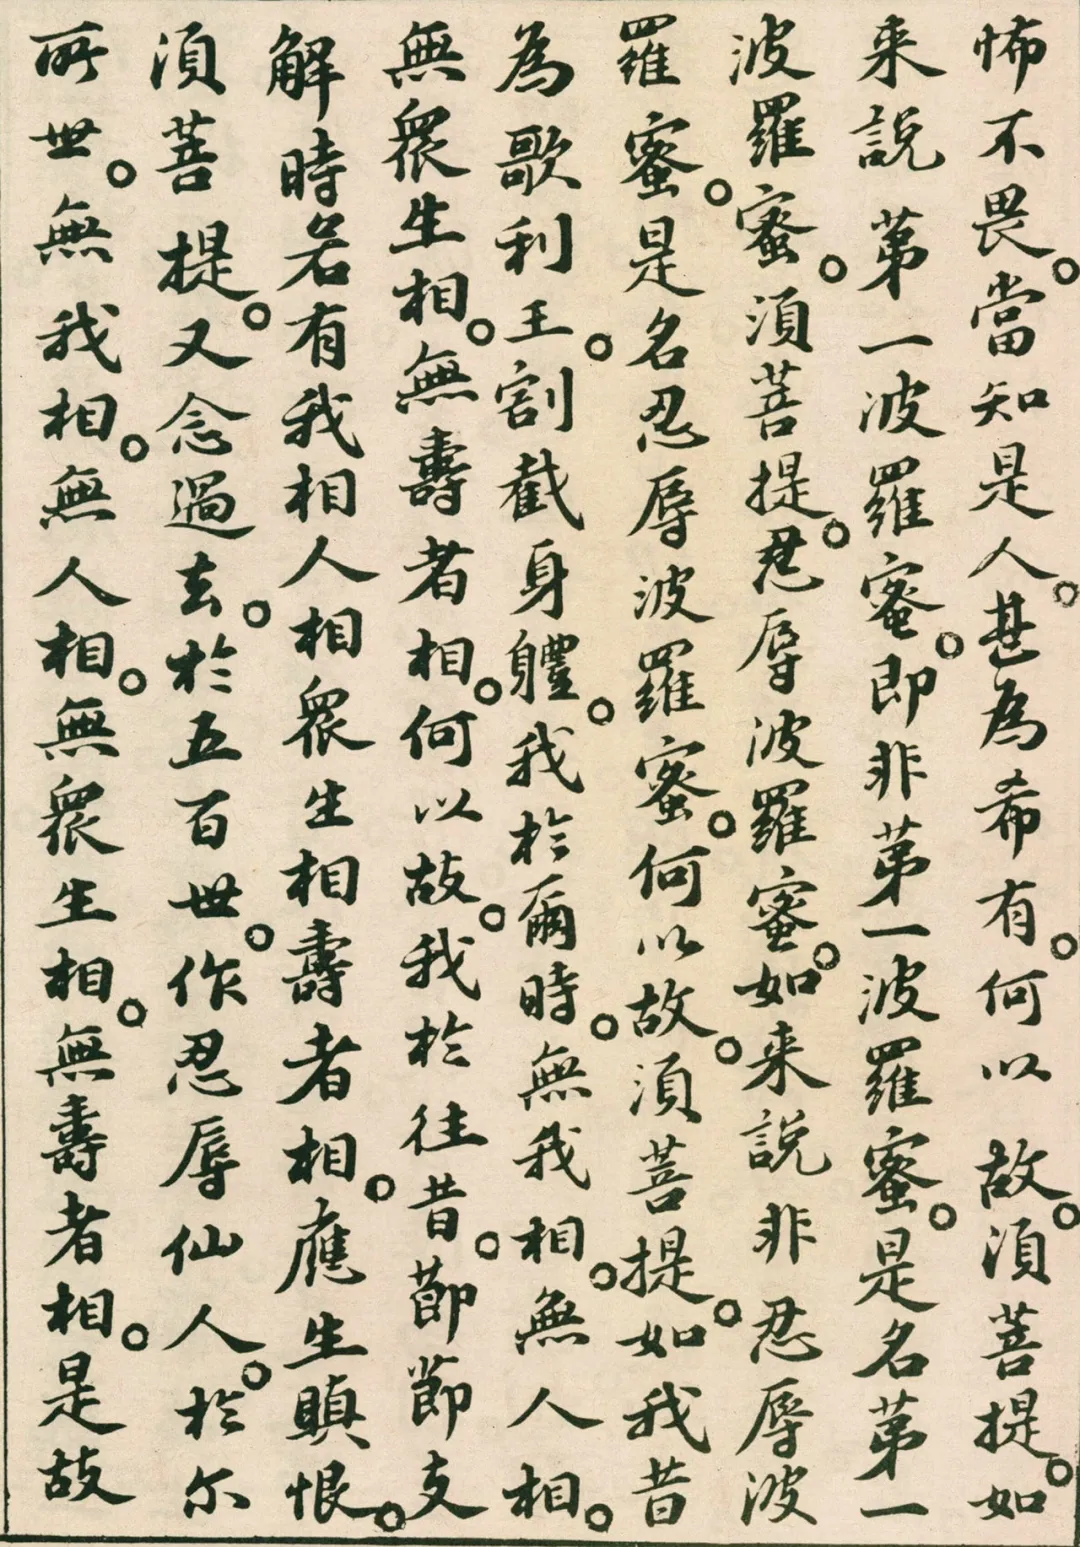 怖不畏。當知是人。甚為希有。何以故。須菩提。如
来說第一波羅蜜。即非第一波羅蜜。是名第一
波羅蜜。須菩提。忍辱波羅蜜。如来說非忍辱波
羅蜜。是名忍辱波羅蜜。何以故。須菩提。如我昔
為歌利王。割截身體。我於爾時。無我相。無人相。
無眾生相。無壽者相。何以故。我於往昔。節節支
解時若有我相人相眾生相壽者相。應生瞋恨。
須菩提。又念過去。於五百世。作忍辱仙人。於尔
所世。無我相。無人相。無眾生相。無壽者相。是故